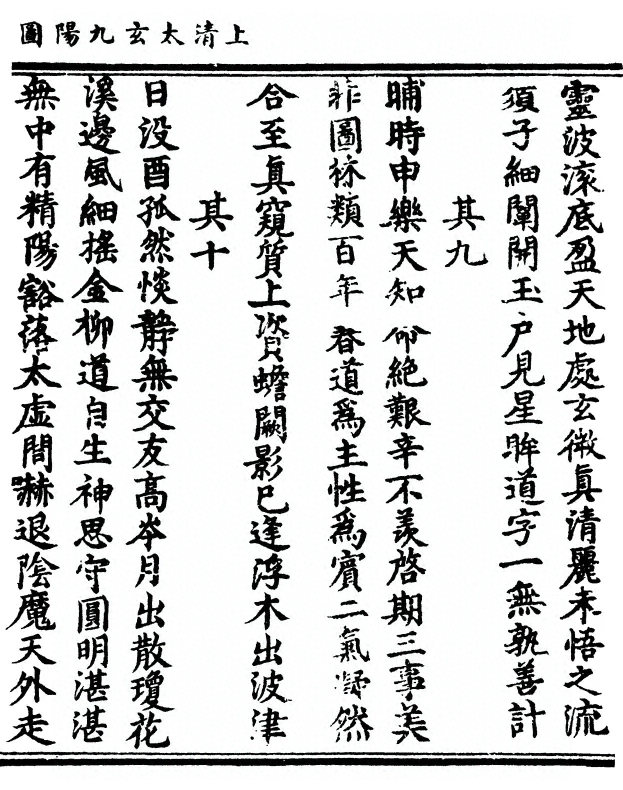 上清太玄九陽圖
靈波滚底盈天地處玄微真清麗未悟之流
須子細闡開玉户見星眸道字一無孰善計
其九
晡時申樂天知命絶艱辛不羨啓期三事美
非圖類百年春道爲主性爲賓二氣凝然
合至真窺質上資蟾闕影巳逢浮木出波津
其十
日没酉孤然惔靜無交友高岑月出散瓊花
溪邊風細搖金柳道自生神思守圓明湛湛
無中有精陽豁落太虚間嚇退陰魔天外走